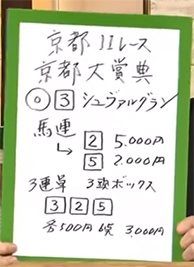 京都11Rレース
京都大賞典
◎ 3 シュヴァルグラン
馬連
2 5.000円
5 2.000円
3連単 3頭ボックス
3 2 5
各500円 6点 3.000円